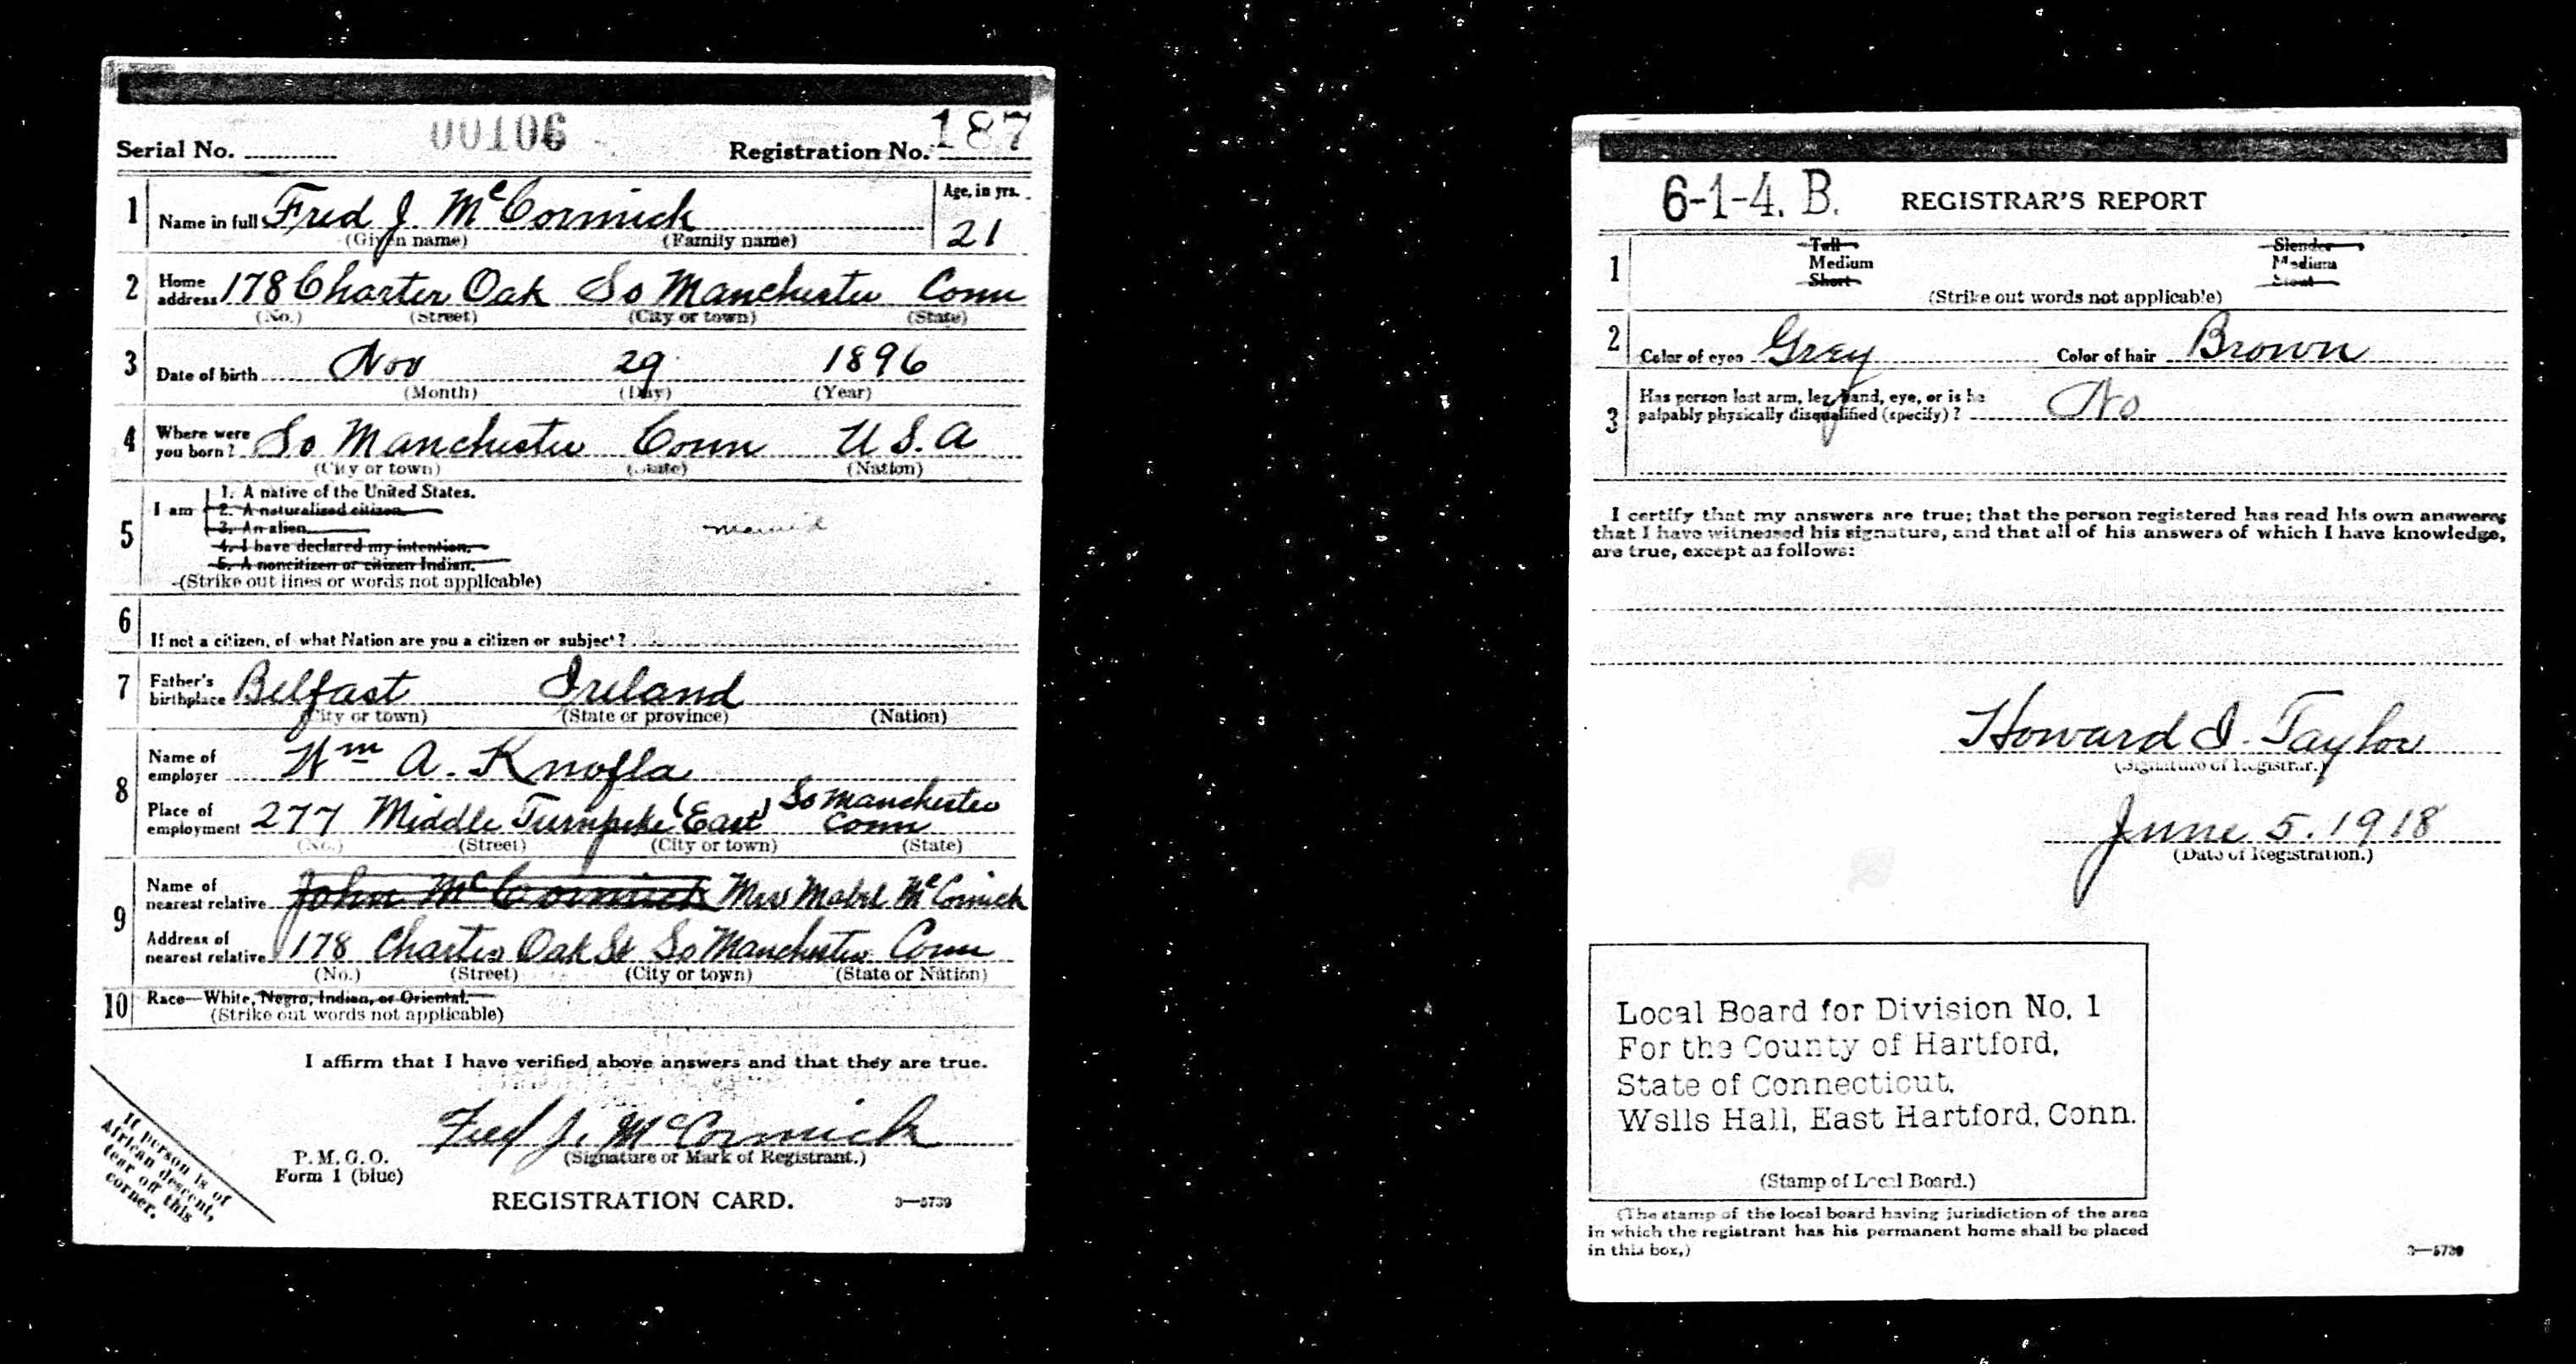 Serial No. 00106 Registration No. 187
1 Name in full Fred J. McCormick Age, in yrs. 21
(Given name) (Family name)
2 Home address 178 Charter Oak So Manchester Conn
(No.) (Street) (City or town) (State)
3 Date of birth Nov 29 1896
(Month) (Day) (Year)
4 Where were you born? So Manchester Conn U.S.A
(City or town) (State) (Nation)
5 I am 1. A native of the United States.
2. A naturalized citizen.
3. An alien.
4. I have declared my intention.
5. A noncitizen or citizen Indian.
(Strike out lines or words not applicable)
6 If not a citizen, of what Nation are you a citizen or subject?
7 Father's birthplace Belfast Ireland
(City or town) (State or province) (Nation)
8 Name of employer Wm A. Knofla
Place of employment 277 Middle Turnpike (East) So Manchester Conn
(No.) (Street) (City or town) (State)
9 Name of nearest relative John McCormick Mrs Mabel McCormick
Address of nearest relative 178 Charter Oak St So Manchester Conn
(No.) (Street) (City or town) (State or Nation)
10 Race—White, Negro, Indian, or Oriental.
(Strike out words not applicable)
I affirm that I have verified above answers and that they are true.
Fred J. McCormick
(Signature or Mark of Registrant.)
P. M. G. O.
Form 1 (blue)
REGISTRATION CARD. 3—5739
If person is of
African descent,
tear off this
corner.
6-1-4. B. REGISTRAR'S REPORT
1 Tall Slender
Medium Medium
Short Stout
(Strike out words not applicable)
2 Color of eyes Grey Color of hair Brown
3 Has person lost arm, leg, hand, eye, or is he
palpably physically disqualified (specify)? No
I certify that my answers are true; that the person registered has read his own answers,
that I have witnessed his signature, and that all of his answers of which I have knowledge,
are true, except as follows:
Howard I. Taylor
(Signature of Registrar.)
June 5. 1918
(Date of Registration.)
Local Board for Division No. 1
For the County of Hartford,
State of Connecticut,
Wslls Hall, East Hartford, Conn.
(Stamp of Local Board.)
(The stamp of the local board having jurisdiction of the area
in which the registrant has his permanent home shall be placed
in this box.)
3—5739